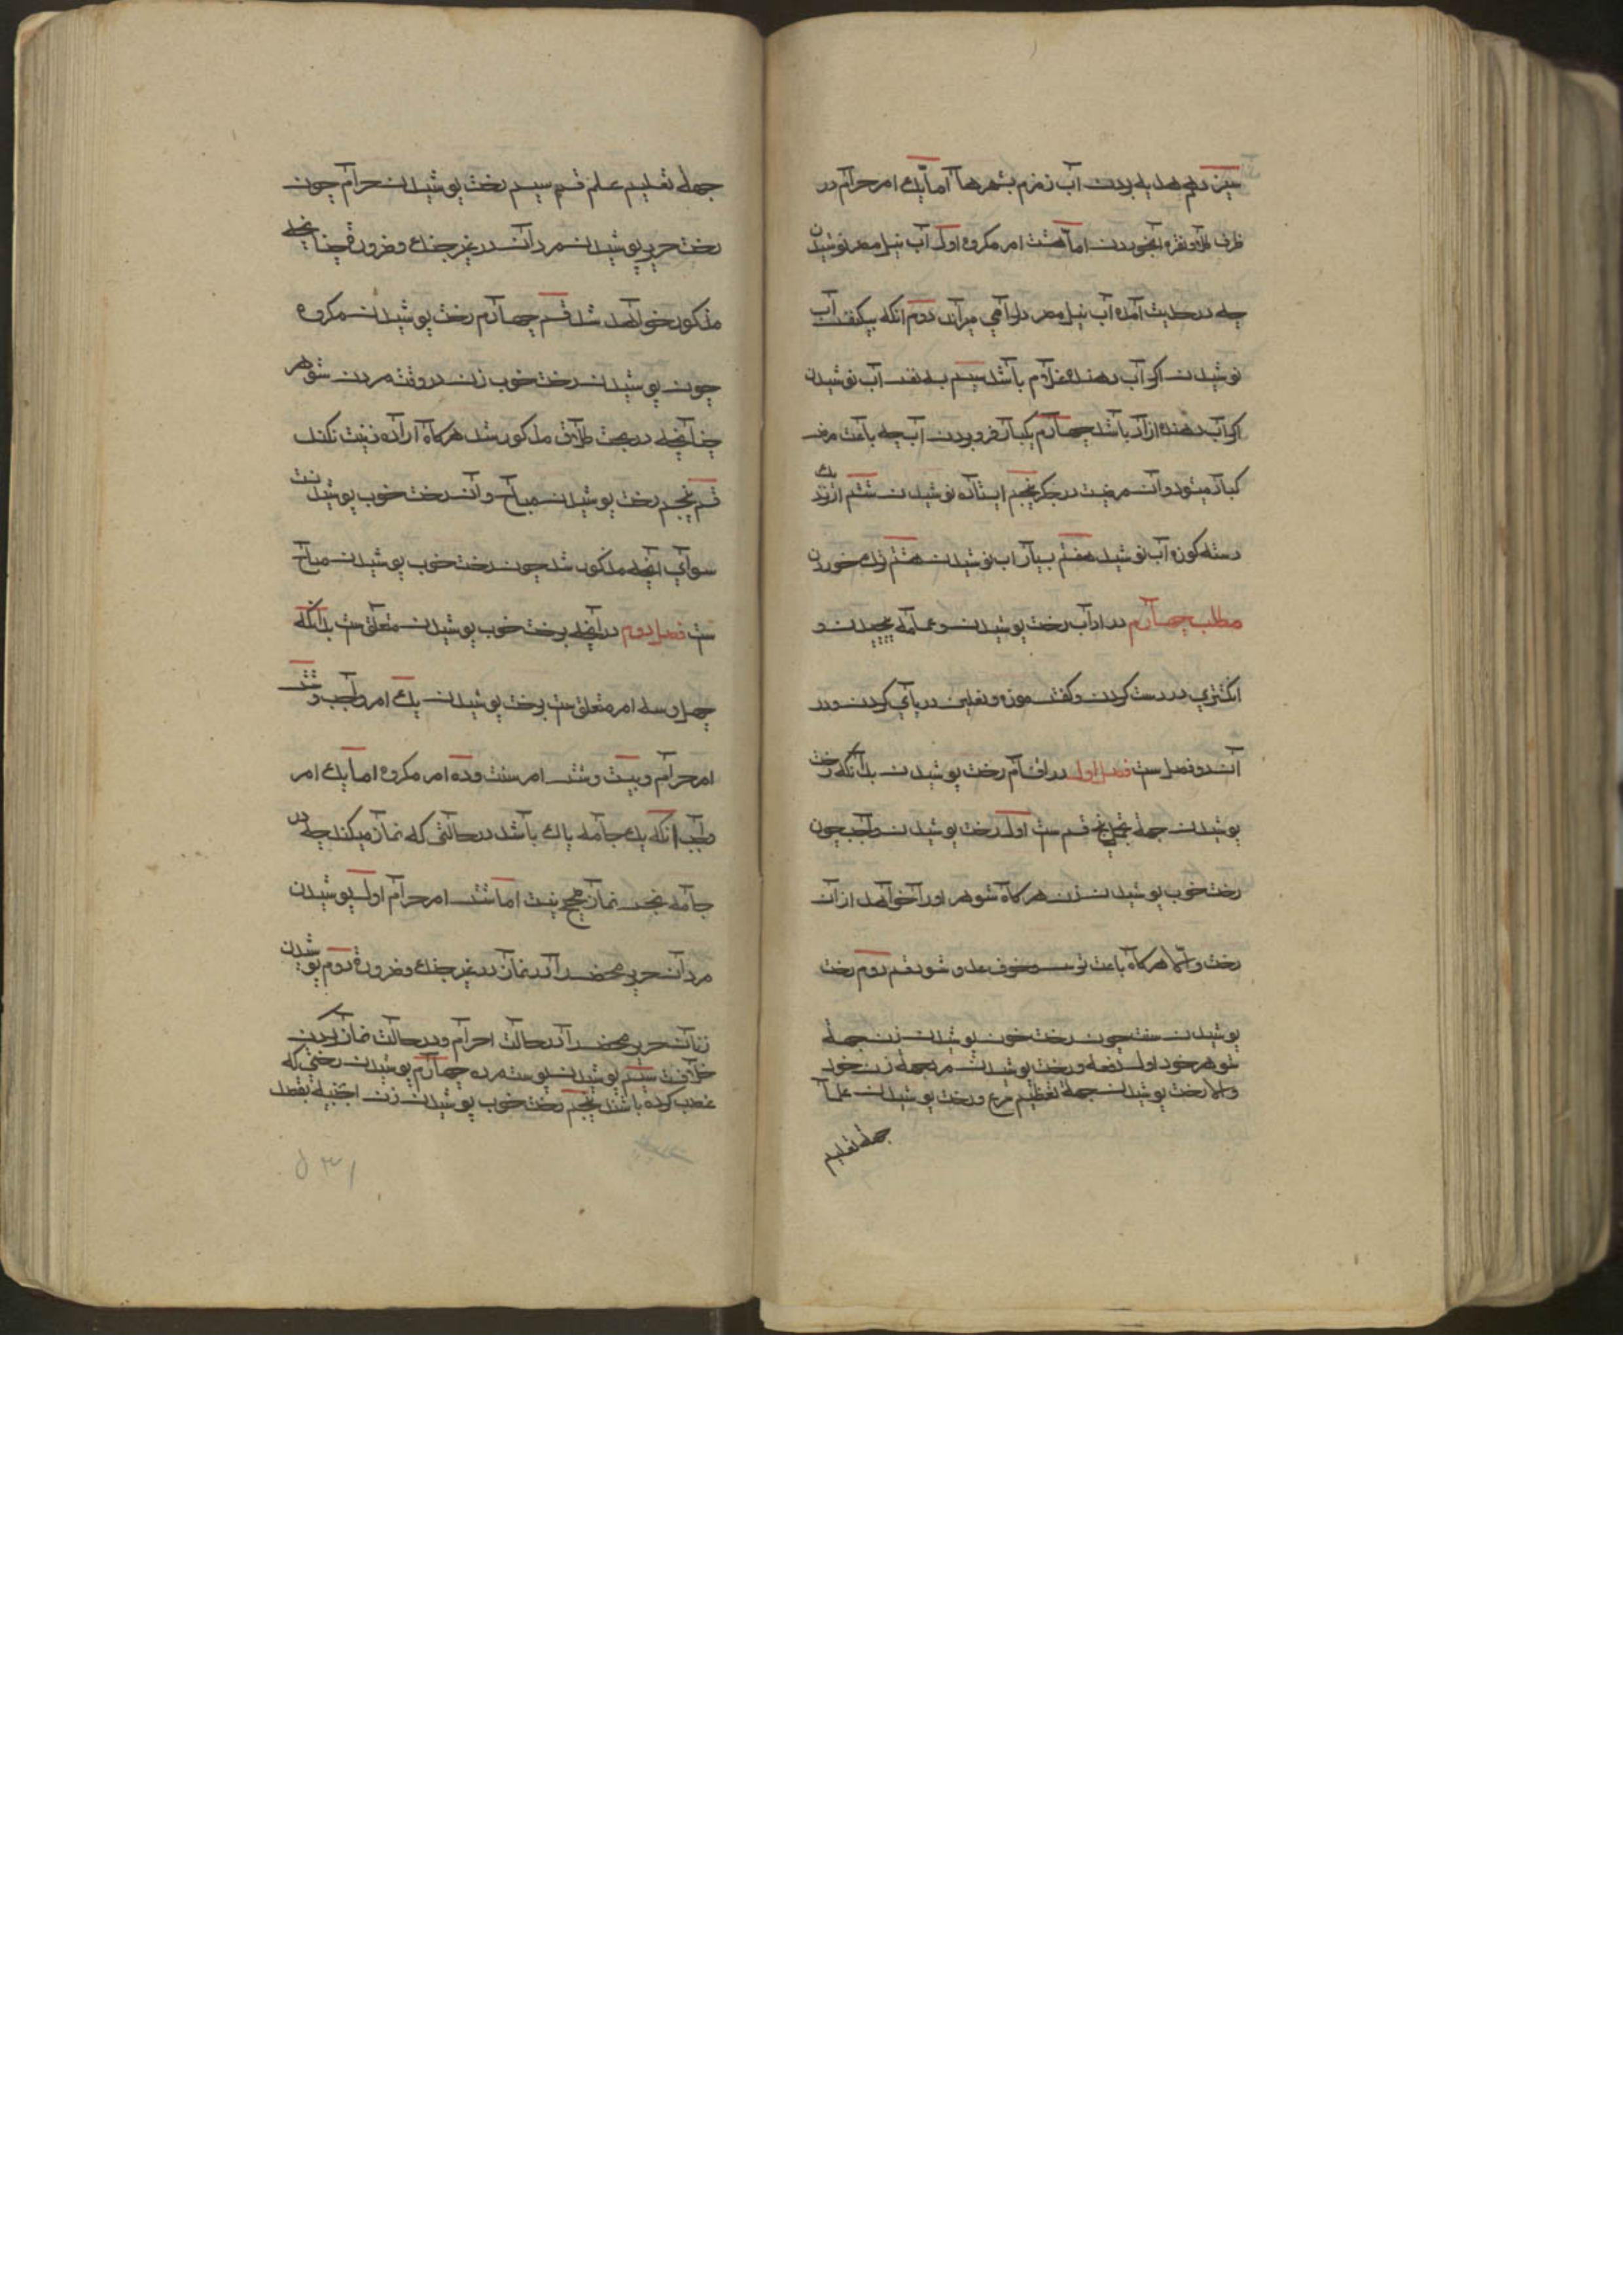 سیزدهم هدیه بردن آب زمزم بشهرها اما یک امر حرام در
ظرف طلا و نقره آبخوردن اما هشت امر مکروه اول آب نیل مصر نوشیدن
چه در حدیث آمده آب نیل مصر دل را می میراند دوم انکه بیکنفس آب
نوشیدن اکر آب دهنده غلام باشد سیم بسه نفس آب نوشیدن
اکر آب دهنده ازاد باشد چهارم یکبار فرو بردن آب چه باعث مرض
کباد میشود و آن مرضیست در جکر پنجم ایستاده نوشیدن ششم از نزدیک
دسته کوزه آب نوشیدن هفتم بسیار اب نوشیدن هشتم خوردن
مطلب چهارم در اداب رخت پوشیدن و عمامه پیچیدن و
انکشتری در دست کردن و کفش و موزه و نعلین در پای کردن و در
آن دو فصل ست فصل اول در اقسام رخت پوشیدن بدانکه رخت
پوشیدن جمله بر پنج قسم ست اول رخت پوشیدن واجب چون
رخت خوب پوشیدن زن هرکاه شوهر او را خواهد از آن
رخت والا هرکاه باعث ترس و خوف عدو شود قسم دوم رخت
پوشیدن سنت چون رخت خوب پوشیدن زن جهة
شوهر خود اول دفعه و رخت پوشیدن مرد جهة زن خود
والا رخت پوشیدن جهة تعظیم شرع و رخت پوشیدن علما
جهة تعلیم
جهة تعلیم علم قسم سیم رخت پوشیدن حرام چون
رخت حریر پوشیدن مردان در غیر جنک و ضرورة چنانچه
مذکور خواهد شد قسم چهارم رخت پوشیدن مکروه
چون پوشیدن رخت خوب زن در وقت مردن شوهر
چنانچه در بحث طلاق مذکور شد هرکاه اراده زینت نکند
قسم پنجم رخت پوشیدن مباح و آن رخت خوب پوشیدنست
سوای آنچه مذکور شد چون رخت خوب پوشیدن مباح
ست فصل دوم در آنچه برخت خوب پوشیدن متعلق ست بدانکه
چهل و سه امر متعلق ست برخت پوشیدن یک امر واجب و شش
امر حرام و بیست و شش امر سنت و ده امر مکروه اما یک امر
واجب انکه یک جامه پاک باشد در حالتی که نماز میکند چه در
جامه نجس نماز صحیح نیست اما شش امر حرام اول پوشیدن
مردان حریر محض را در نماز در غیر جنک و ضرورة دوم پوشیدن
زنان حریر محض را در حالت احرام و در حالت نماز کردن
خلافست سیم پوشیدن پوست مرده چهارم پوشیدن رختی که
غصب کرده باشند پنجم رخت خوب پوشیدن زن اجنبیة بقصد